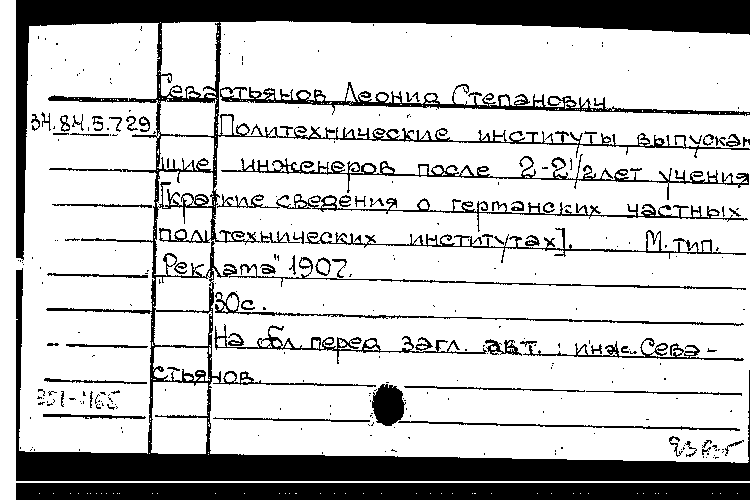 Севастьянов, Леонид Степанович.
34.84.5.729. Политехнические институты, выпускаю
щие инженеров после 2-2 1/2 лет учения
[Краткие сведения о германских частных
политехнических институтах]. М. тип.
"Реклама" 1907.
30с.
На обл. перед загл. авт.: инж. Сева-
стьянов.
351-465